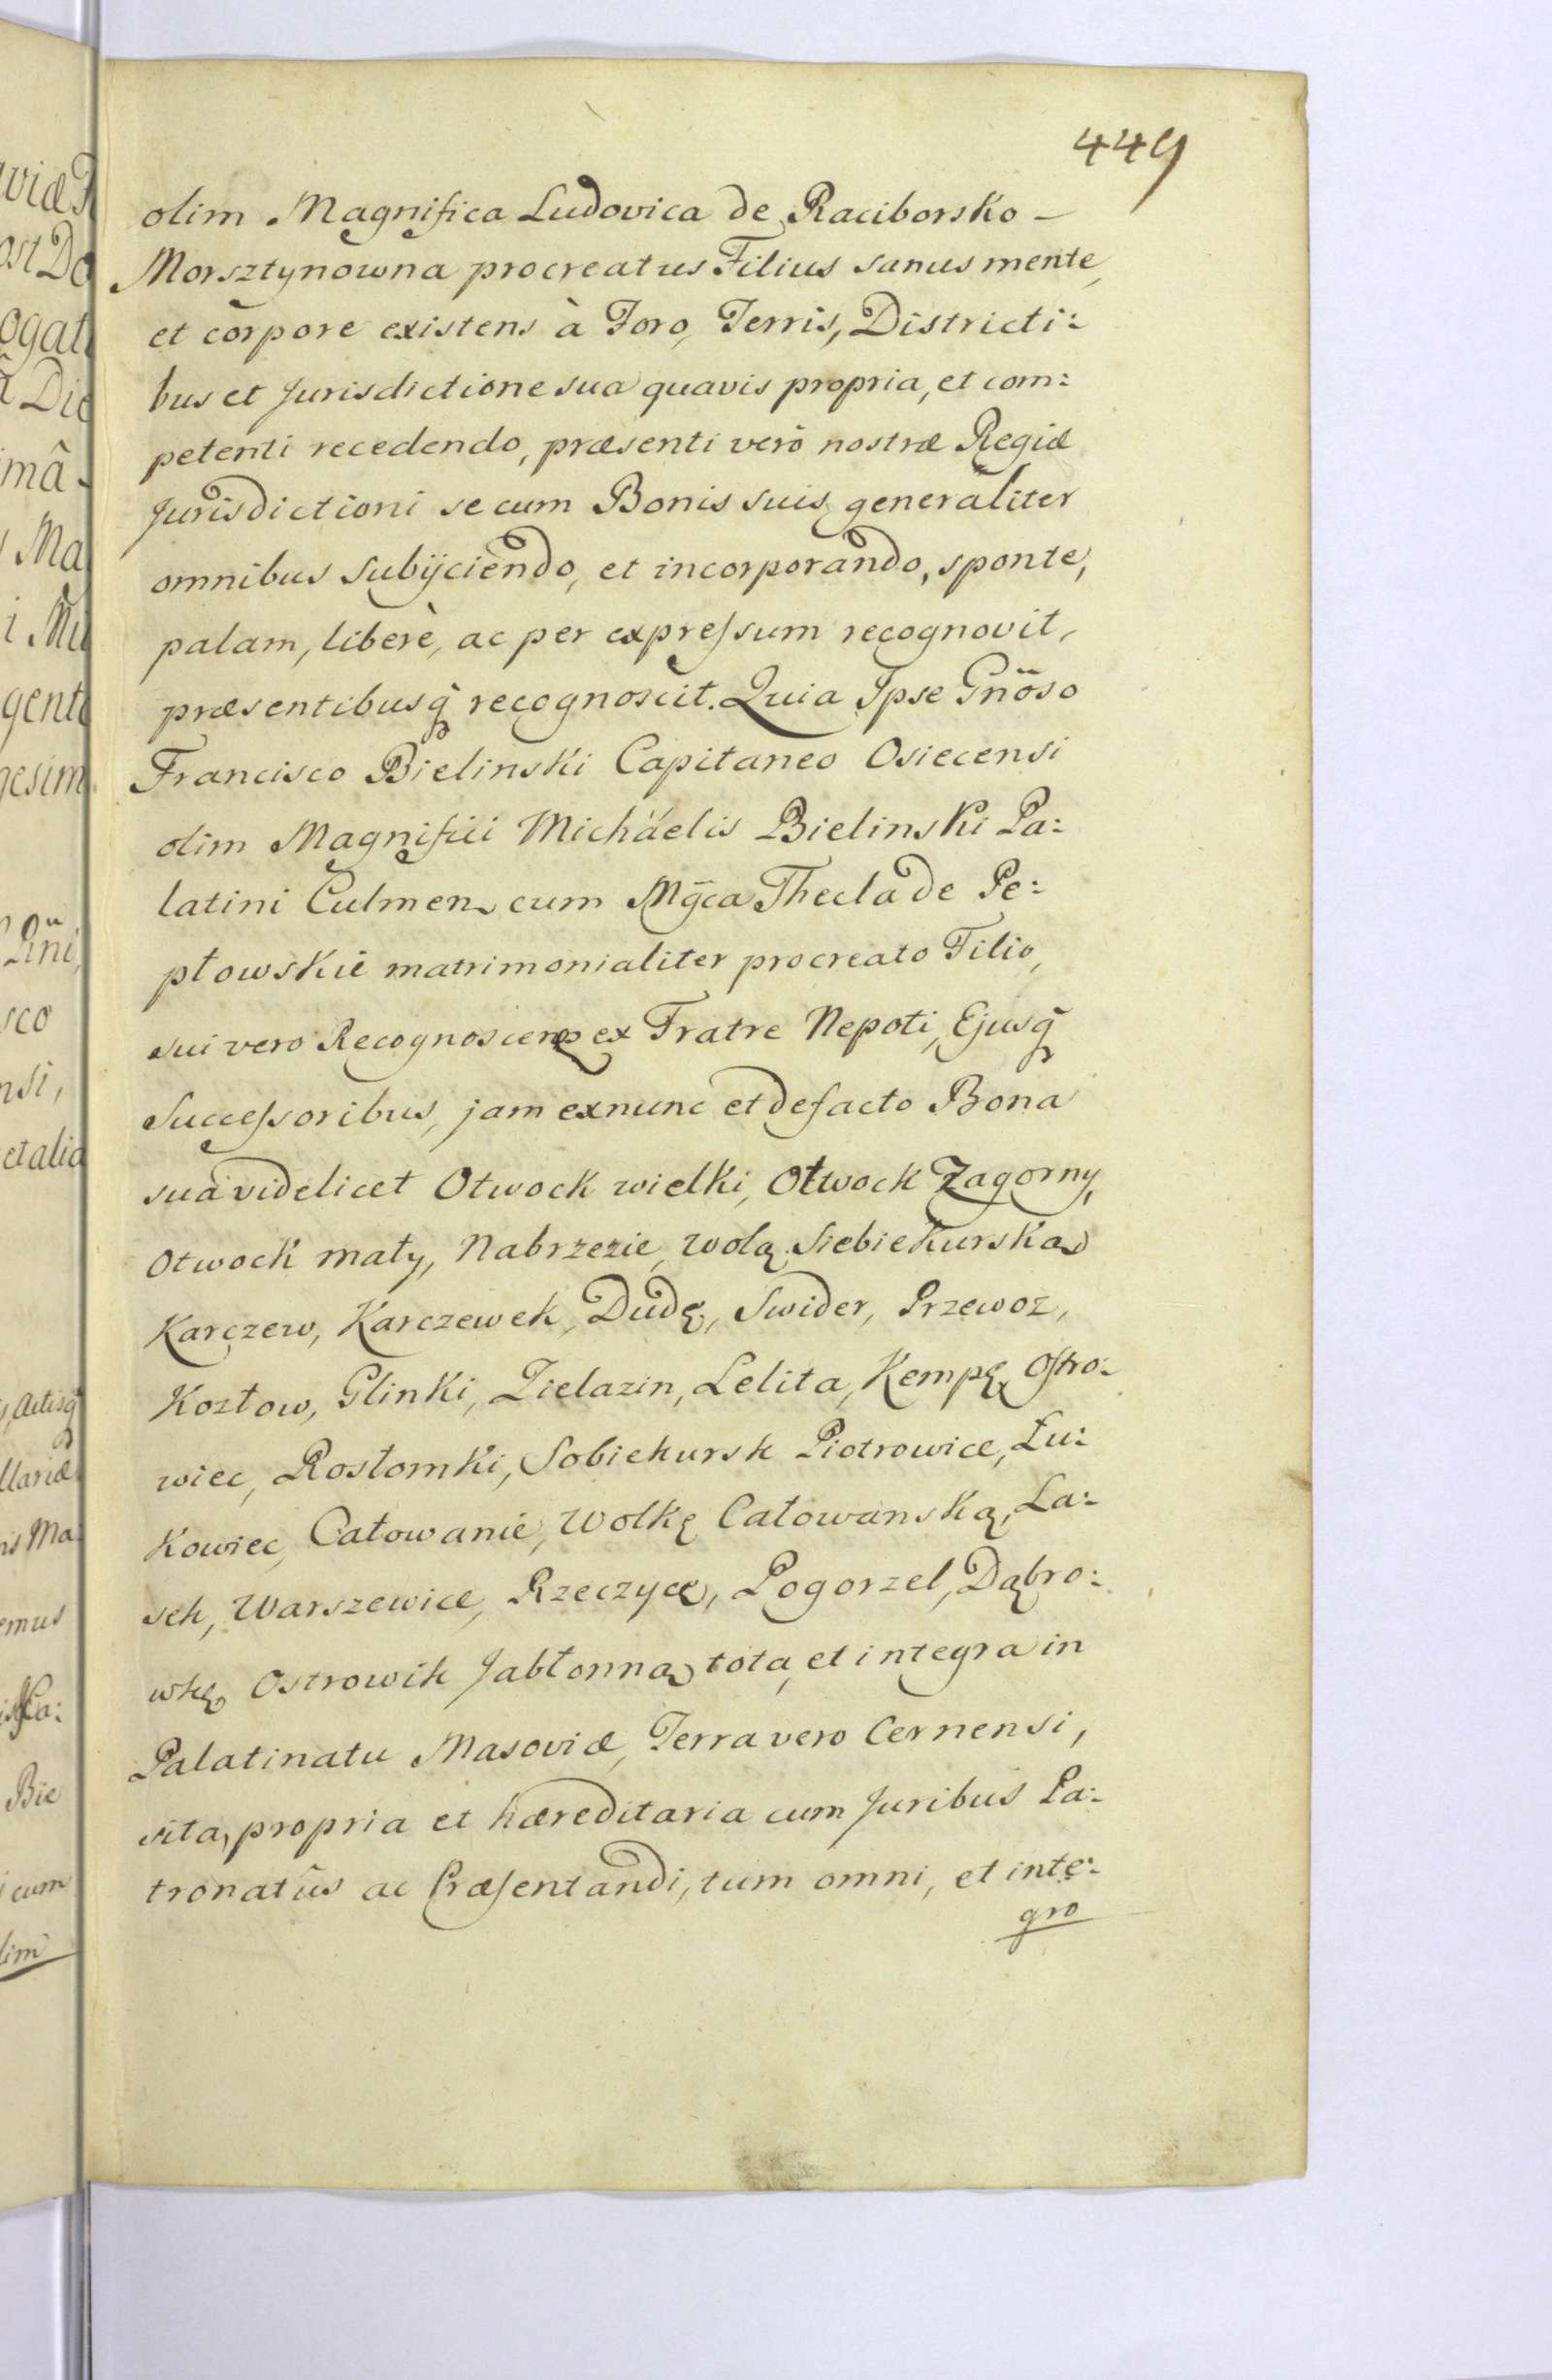 449
olim Magnifica Ludovica de Raciborsko –
Morsztynowna procreatus Filius sanus mente,
et corpore existens à Foro, Terris, Districti:
bus et Jurisdictione sua quavis propria, et com:
petenti recedendo, præsenti verò nostræ Regiæ
Jurisdictioni se cum Bonis suis generaliter
omnibus subijciendo, et incorporando, sponte,
palam, liberè, ac per expressum recognovit,
præsentibusq̃ recognoscit. Quia Ipse Gn̈oso
Francisco Bielinski Capitaneo Osiecensi
olim Magnifici Michäelis Bielinski Pa:
latini Culmen. cum Mg̈ca Thecla de Pe:
płowskie matrimonialiter procreato Filio,
sui vero Recognoscen ex Fratre Nepoti, Ejusq̃
Successoribus, jam exnunc et defacto Bona
sua videlicet Otwock wielki, Otwock Zagorny,
Otwock mały, Nabrzezie, wolą Siebiekurską
Karczew, Karczewek, Dudę, Swider, Przewoz,
Kozłow, Glinki, Zielazin, Lelita, Kempę, Ostro:
wiec, Rosłomki, Sobiekursk Piotrowice, Łu:
kowiec, Całowanie, Wolkę Całowanską, La:
sek, Warszewice, Rzeczyce, Pogorzel, Dąbro:
wkę Ostrowik Jabłonną tota, et integra in
Palatinatu Masoviæ, Terra vero Cernensi,
sita, propria et hæreditaria cum Juribus Pa:
tronatûs ac Præsentandi, tum omni, et inte:
gro
viæ
ost Do
ogat
Die
mâ
Ma
i Mi
gent
gesim
sco
nsi,
et alia
llariæ
is Ma
emus
Bie
cum
lim